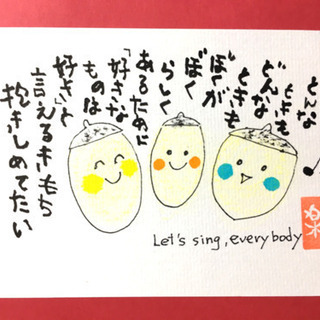 どんな
ときも
どんな
ときも
ぼくが
ぼく
らしく
あるために
「好きな
ものは
好き」と
言えるきもち
抱きしめてたい
Let's sing, everybody